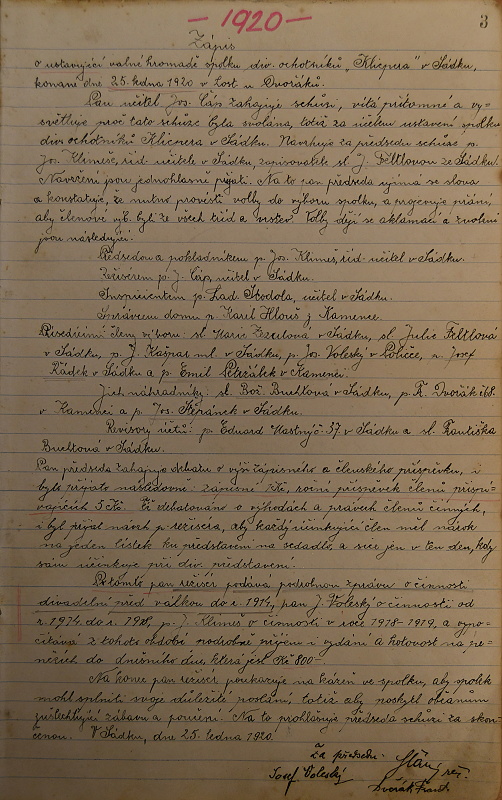 — 1920 —
3
Zápis
o ustavující valné hromadě spolku div. ochotníků „Klicpera" v Sádku,
konané dne 25. ledna 1920 v host. u Dvořáků.
Pan učitel Jos. Čáp zahajuje schůzi, vítá přítomné a vy-
světluje proč tato schůze byla svolána, totiž za účelem ustavení spolku
div. ochotníků Klicpera v Sádku. Navrhuje za předsedu schůze p.
Jos. Klimeše, říd. učitele v Sádku, zapisovatele sl. J. Feltlovou ze Sádku.
Navržení jsou jednohlasně přijati. Na to pan předseda ujímá se slova
a konstatuje, že nutno provésti volby do výboru spolku, a projevuje přání,
aby členové výb. byli ze všech tříd a vrstev. Volby dějí se aklamací a zvoleni
jsou následující:
Předsedou a pokladníkem p. Jos. Klimeš, říd. učitel v Sádku.
Režisérem p. J. Čáp, učitel v Sádku.
Inspicientem p. Lad. Škodola, učitel v Sádku.
Správcem domu p. Karel Hlouš z Kamence.
Přísedícími členy výboru: sl. Marie v Sádku, sl. Julie Feltlová
v Sádku, p. J. Kašpar ml. v Sádku, p. Jos. Voleský v Poličce, p. Josef
Kádek v Sádku a p. Emil Petržálek v Kamenci.
Jich náhradníky: sl. Bož. Buchtová v Sádku, p. F. Dvořák č. 68.
v Kamenci a p. Jos. Beránek v Sádku.
Revisory účtů: p. Eduard Mastný č. 37. v Sádku a sl. Františka
Buchtová v Sádku.
Pan předseda zahajuje debatu o výši zápisného a členského příspěvku, i
bylo přijato následovně: zápisné 1 Kč, roční příspěvek členů přispí-
vajících 5 Kč. Též debatováno o výhodách a právech členů činných,
i byl přijat návrh p. režiséra, aby každý účinkující člen měl nárok
na jeden lístek ku představení na sedadlo, a sice jen v ten den, kdy
sám účinkuje při div. představení.
Potom pan režisér podává podrobnou zprávu o činnosti
divadelní před válkou do r. 1914, pan J. Voleský o činnosti od
r. 1914 do r. 1918, p. J. Klimeš o činnosti v roce 1918-1919, a vypo-
čítává z tohoto období podrobně příjem i vydání a hotovost na pe-
nězích do dnešního dne, která jest Kč 800—
Na konec pan režisér poukazuje na kázeň ve spolku, aby spolek
mohl splniti svoje důležité poslání, totiž aby poskytl občanům
zušlechťující zábavu a poučení. Na to prohlašuje předseda schůzi za skon-
čenou. V Sádku, dne 25. ledna 1920.
Za předsedu:
Josef Voleský
Čáp rež.
Dvořák Frant.